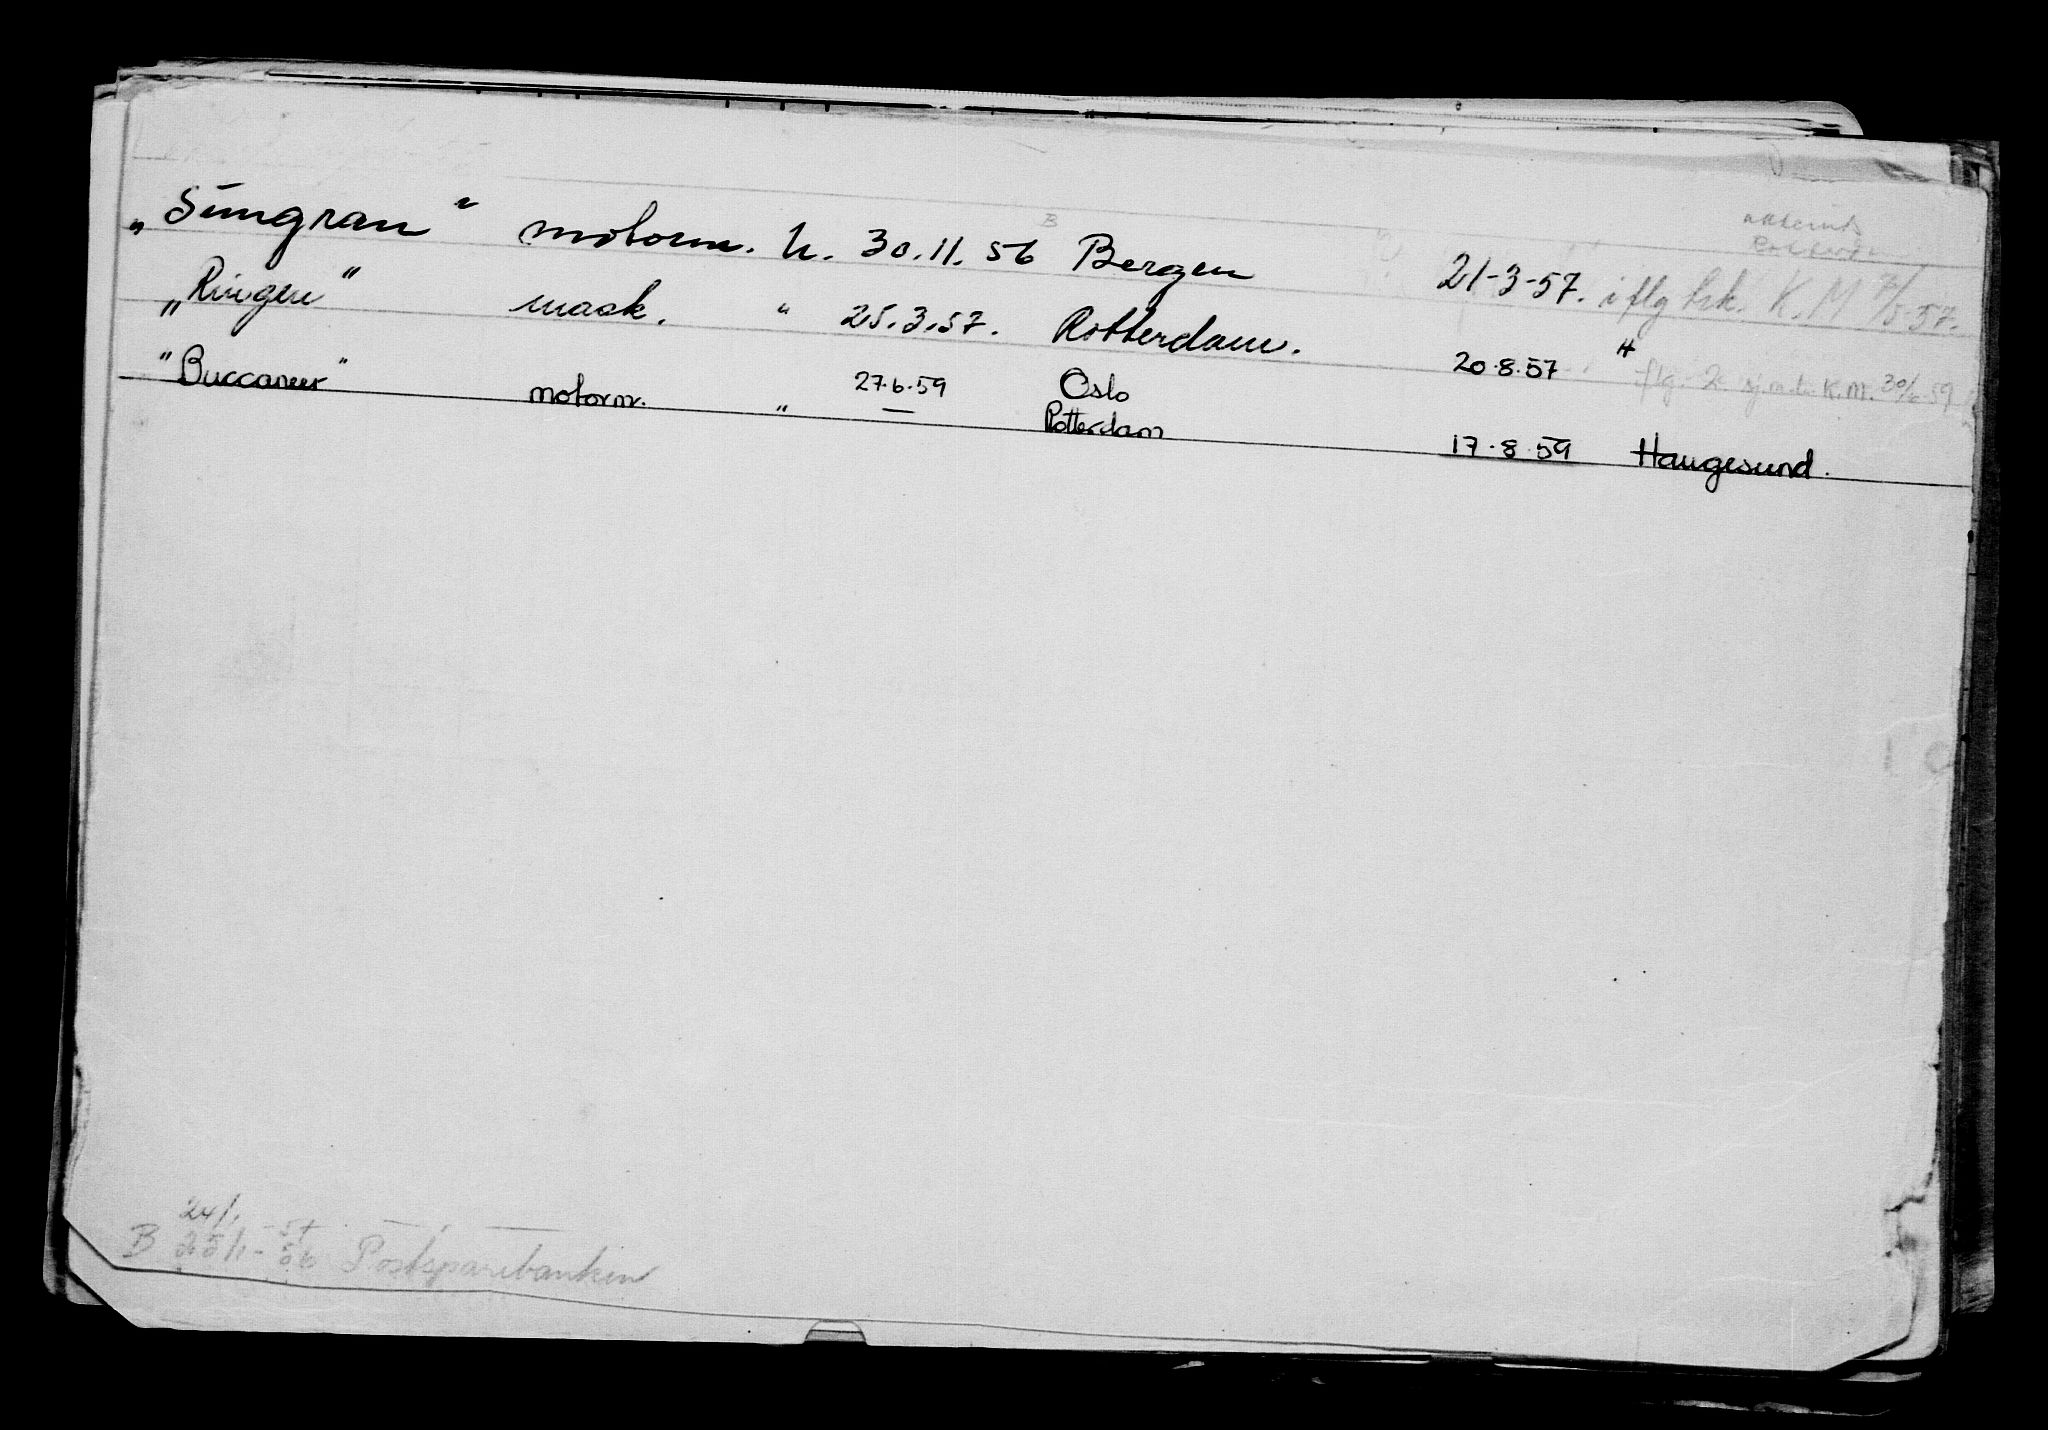 „Sungran" motorm. h. 30.11.56 Bergen 21-3-57. i flg hk. K.M 7/5-57.
„Ringen" mask. " 25.3.57. Rotterdam. 20.8.57 "
"Buccaneer" motorm. " 27.6.59 Oslo flg. K.M. 30/6 59
— Rotterdam 17.8.59 Haugesund.
24/1 - 57
B 25/1 - 56 Postsparebanken